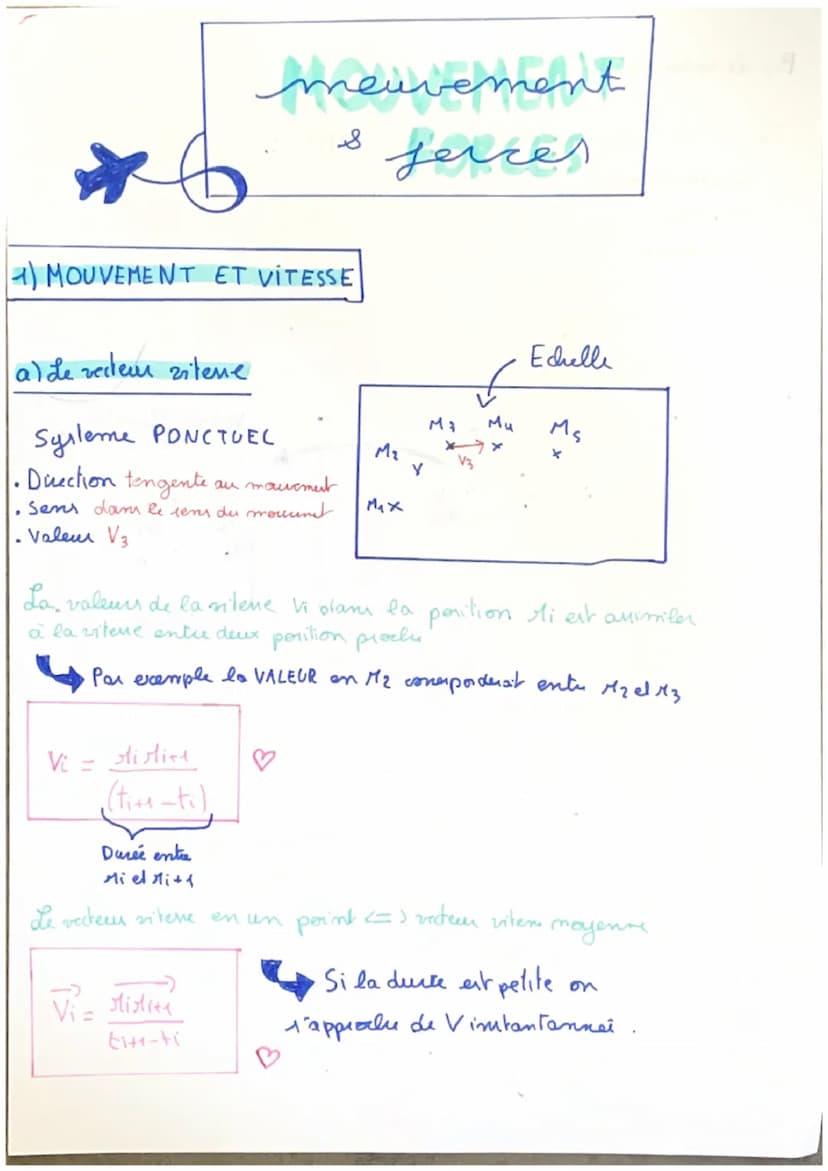 MOUVEMENT
mouvement
FORCES
& forces
1) MOUVEMENT ET VITESSE
a) Le vecteur vitesse
Echelle
Systeme PONCTUEL
. Direction tengente au mouvement
. Sens dans le sens du mouvmet
. Valeur V3
M1 M2 M3 M4 M5
V3
La valeurs de la vitesse Vi dans la position Mi est assimiler
à la vitesse entre deux position proche
Par exemple la VALEUR en M2 correspondrait entre M2 et M3
Vi = MiMi+1
(ti+1 - ti)
Durée entre
Mi et Mi+1
Le vecteur vitesse en un point <=> vecteur vitesse moyenne
Vi = MiMi+1
ti+1-ti
Si la durée est petite on
s'approche de V instantanneé .